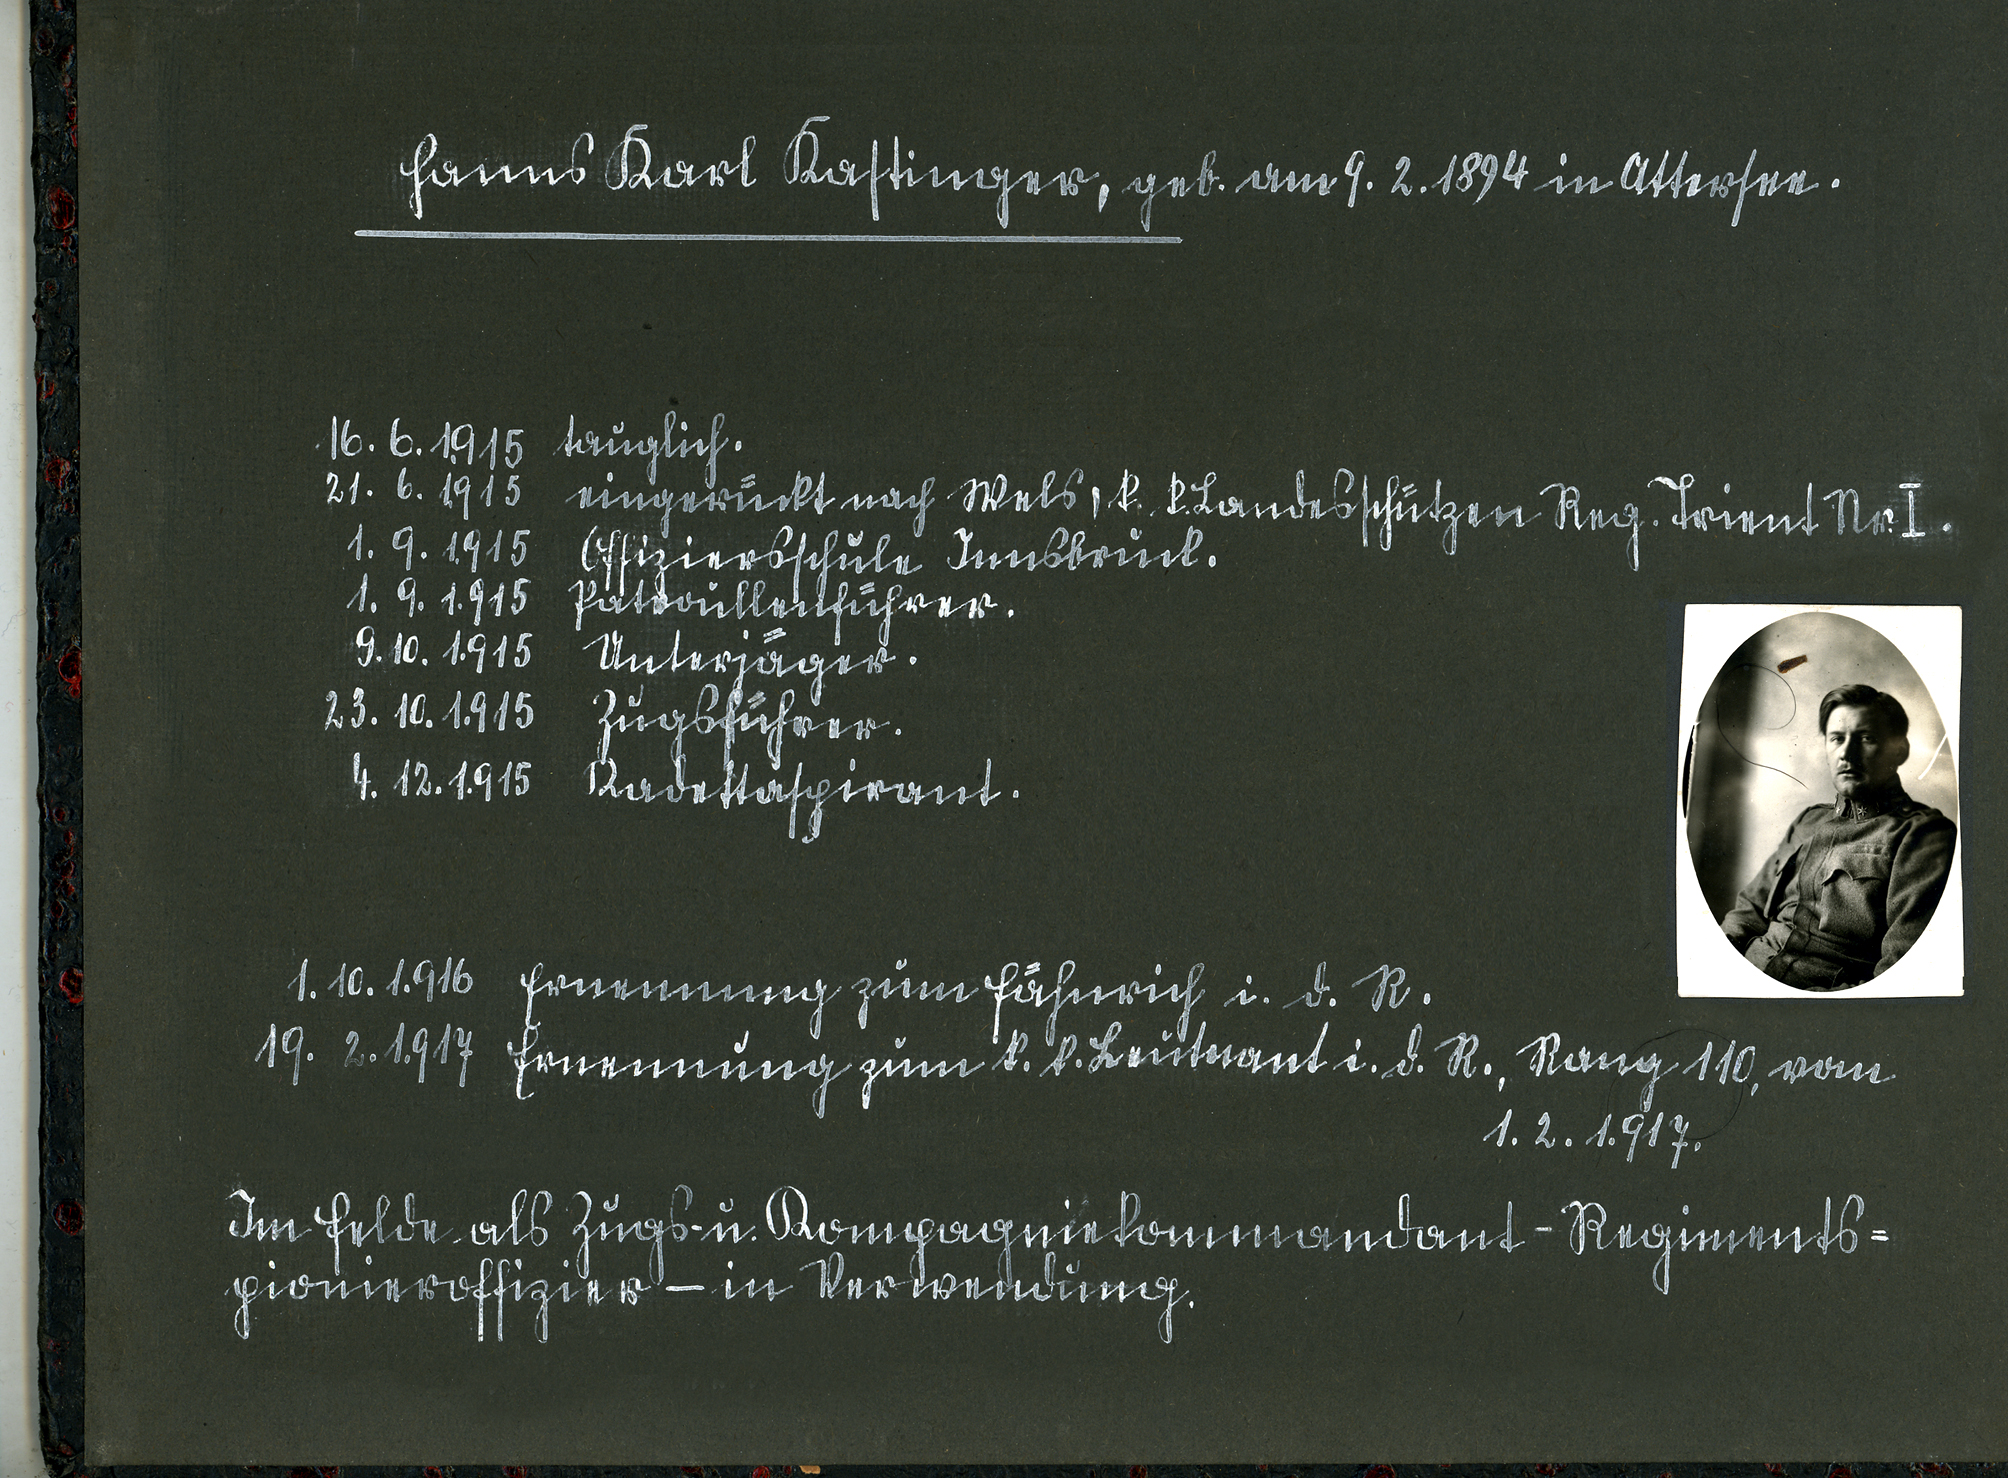 Hanns Karl Kastinger, geb. am 9. 2. 1894 in Attersee.
16. 6. 1915 tauglich.
21. 6. 1915 eingerückt nach Wels, k. k. Landesschützen Reg. Trient Nr. I.
1. 9. 1.915 Offiziersschule Innsbruck.
1. 9. 1.915 Patroullenführer.
9. 10. 1.915 Unterjäger.
23. 10. 1.915 Zugsführer.
4. 12. 1.915 Kadettaspirant.
1. 10. 1.916 Ernennung zum Fähnrich i. d. R.
19. 2. 1.917 Ernennung zum k. k. Leutnant i. d. R., Rang 110, vom
1. 2. 1.917.
Im Felde als Zugs- u. Kompagniekommandant - Regiments=
pionieroffizier - in Verwendung.